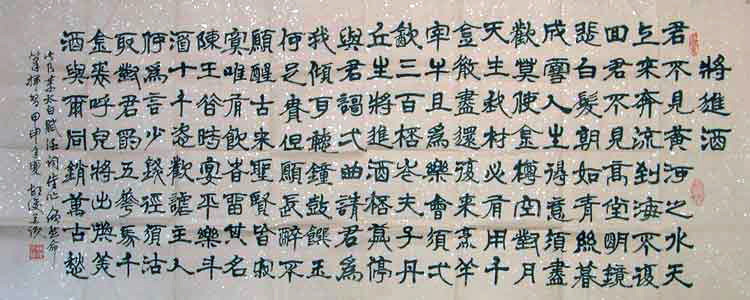 將進酒
君不見黃河之水天
上來奔流到海不復
回君不見高堂明鏡
悲白髮朝如青絲暮
成雪人生得意須盡
歡莫使金樽空對月
天生我材必有用千
金散盡還復來烹羊
宰牛且為樂會須弌
飲三百桮岑夫子丹
丘生將進酒桮莫停
與君謌弌曲請君為
我傾耳聽鐘鼓饌玉
何足貴但願長醉不
願醒古來聖賢皆寂
寞唯有飲者留其名
陳王昔時宴平樂斗
酒十千恣歡謔主人
何為言少錢徑須沽
取對君酌五花馬千
金裘呼兒將出換美
酒與爾同銷萬古愁
李太白
甲申